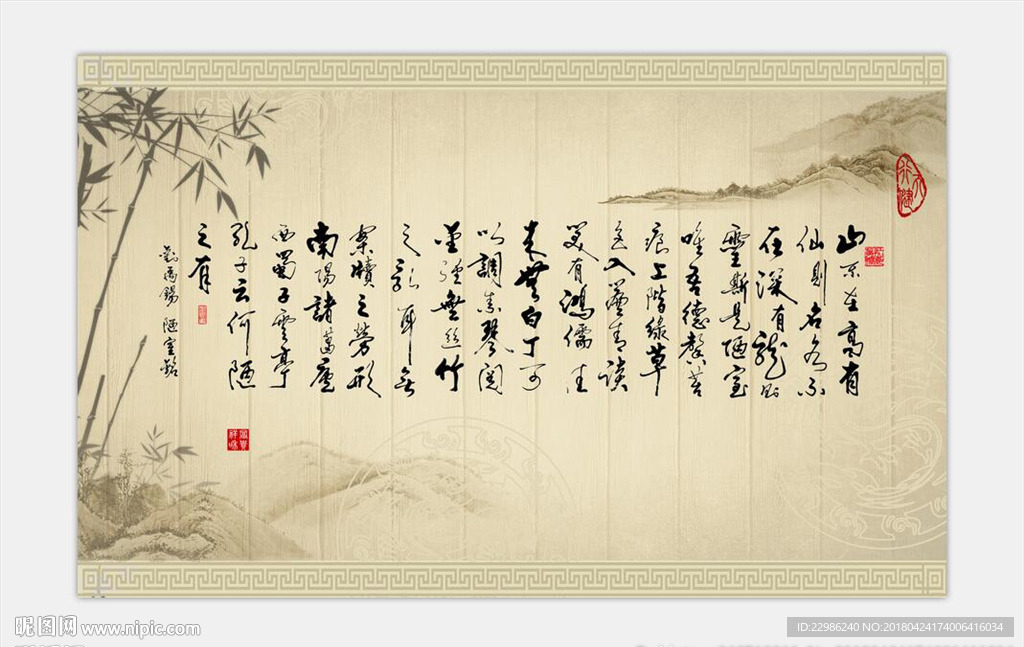 山不在高有
仙則名水不
在深有龍則
靈斯是陋室
唯吾德馨苔
痕上階綠草
色入簾青談
笑有鴻儒往
來無白丁可
以調素琴閱
金經無絲竹
之亂耳無
案牘之勞形
南陽諸葛廬
西蜀子雲亭
孔子云何陋
之有
劉禹錫 陋室銘
天行健
昵图网 www.nipic.com
ID:22986240 NO:20180424174006416034